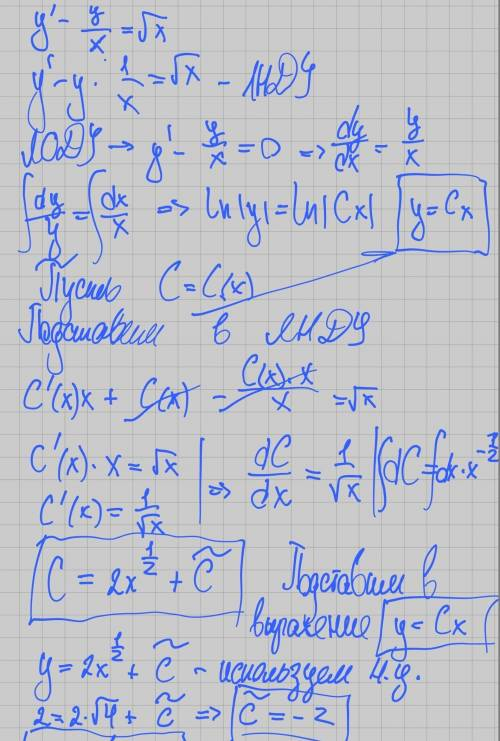 y' - y/x = √x
y' - y · 1/x = √x - ЛНДУ
ЛОДУ → y' - y/x = 0 => dy/dx = y/x
∫ dy/y = ∫ dx/x => ln|y| = ln|Cx| y = Cx
Пусть C = C(x)
Подставим в ЛНДУ
C'(x)x + C(x) - C(x)·x/x = √x
C'(x) · x = √x | => dC/dx = 1/√x | ∫dC = ∫dx · x^(-1/2)
C'(x) = 1/√x
C = 2x^(1/2) + C̃ Подставим в
выражение y = Cx
y = 2x^(1/2) + C̃ - используем Н.У.
2 = 2·√4 + C̃ => C̃ = -2